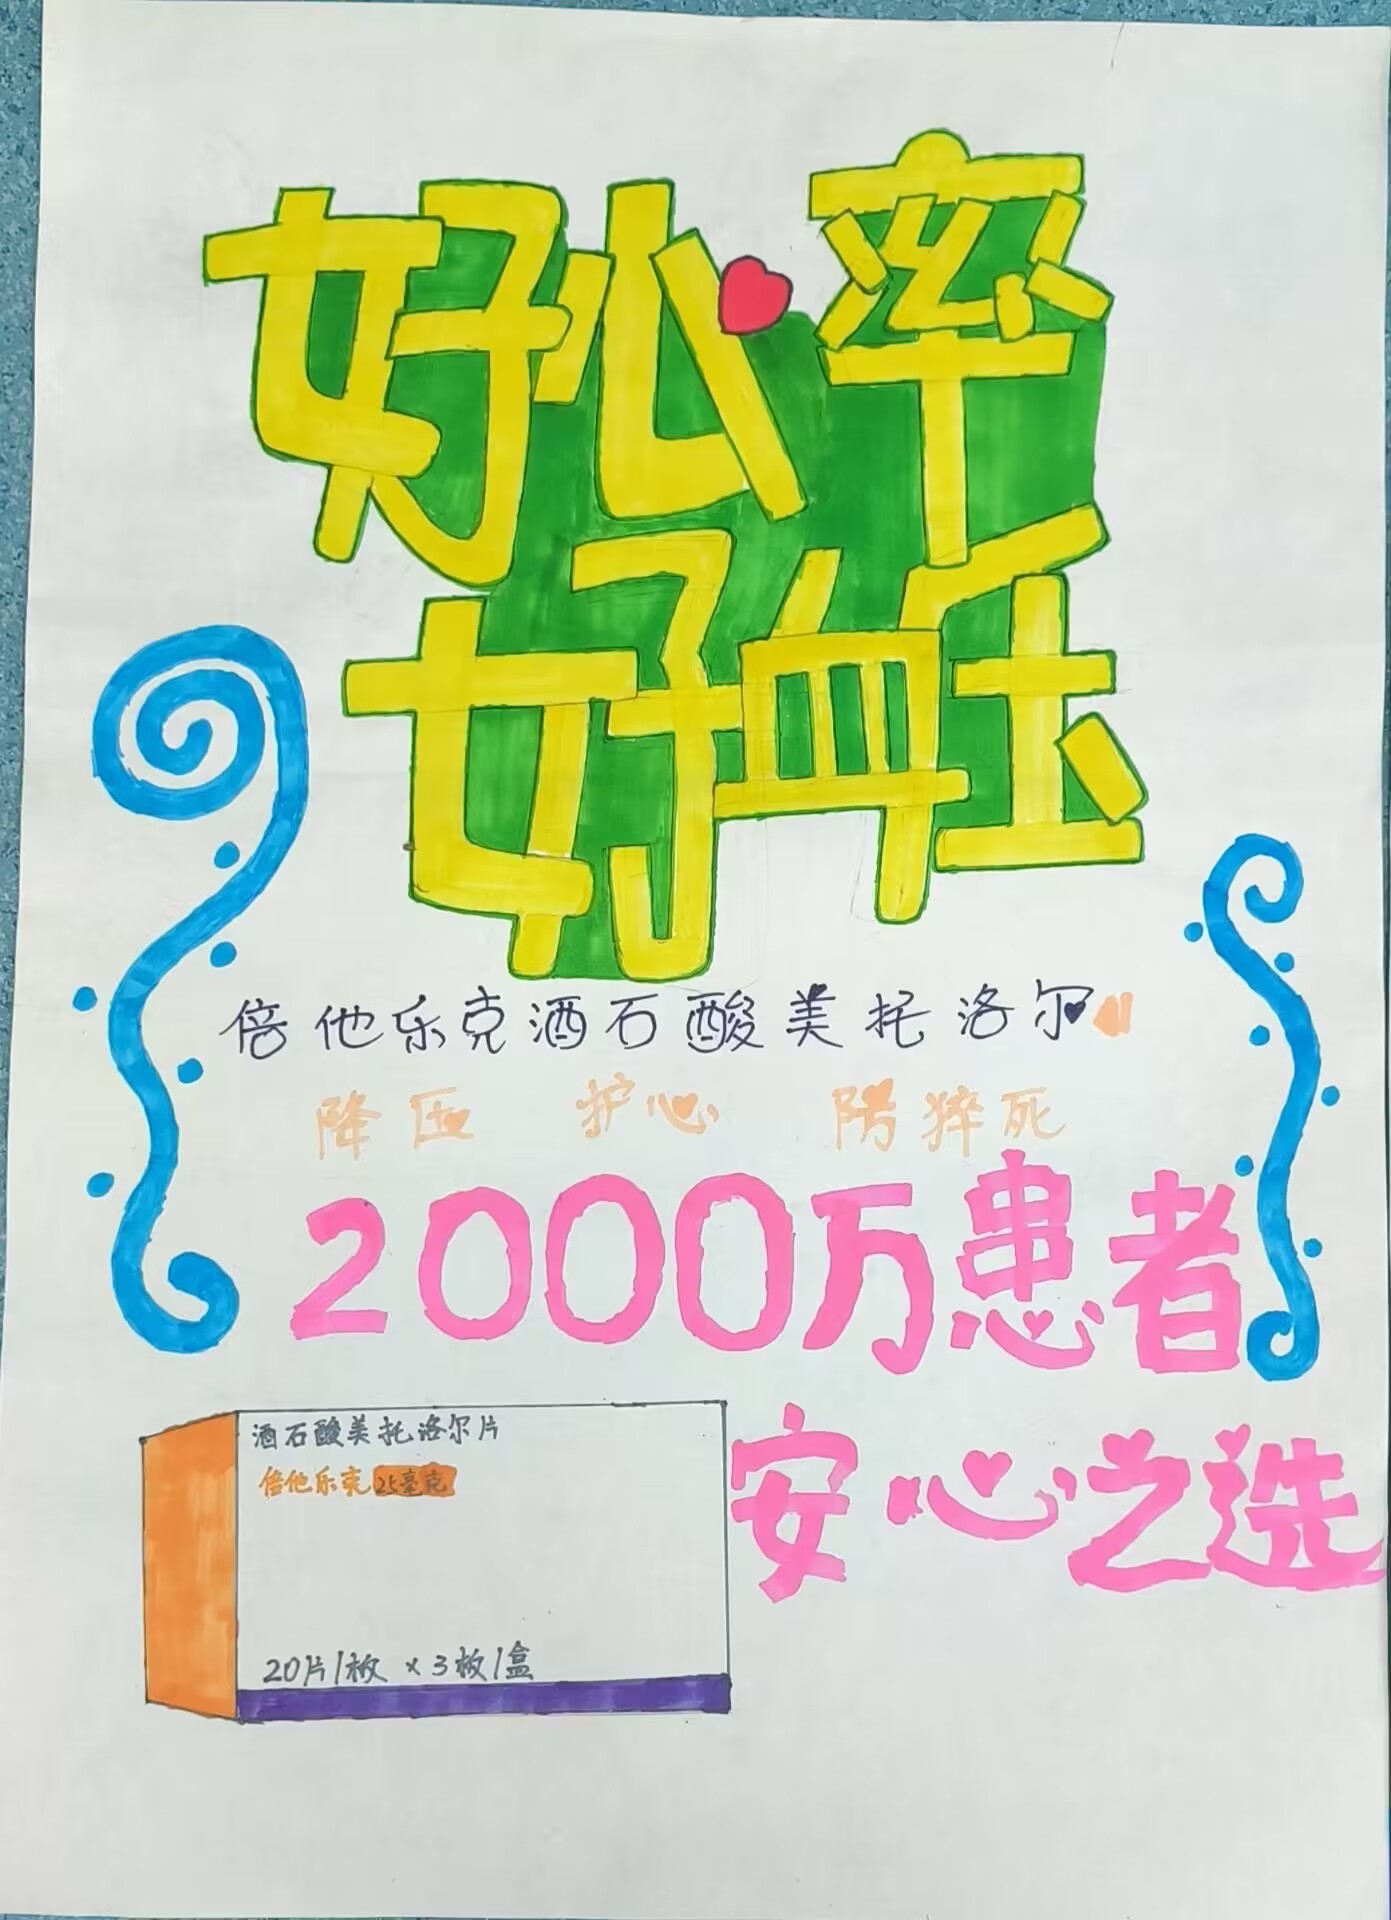 好心率
好血压
倍他乐克酒石酸美托洛尔
降压 护心 防猝死
2000万患者
安心之选
酒石酸美托洛尔片
倍他乐克 25毫克
20片/板 ×3板/盒